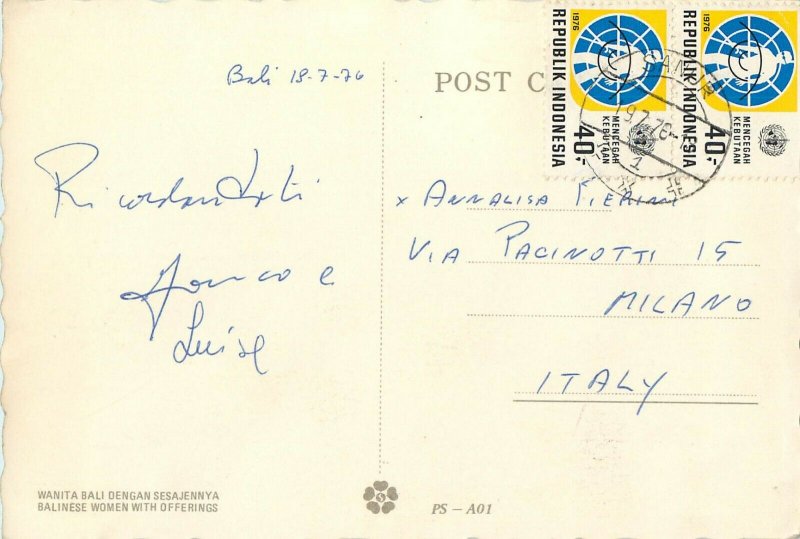 Bali 18-7-76
POST C
1976
REPUBLIK INDONESIA
40,-
MENCEGAH
KEBUTAAN
1976
REPUBLIK INDONESIA
40,-
MENCEGAH
KEBUTAAN
SANUR
1
Ricordandoti
Franco e
Luisa
x ANNALISA PIERINI
VIA PACINOTTI 15
MILANO
ITALY
WANITA BALI DENGAN SESAJENNYA
BALINESE WOMEN WITH OFFERINGS
S
PS – A01